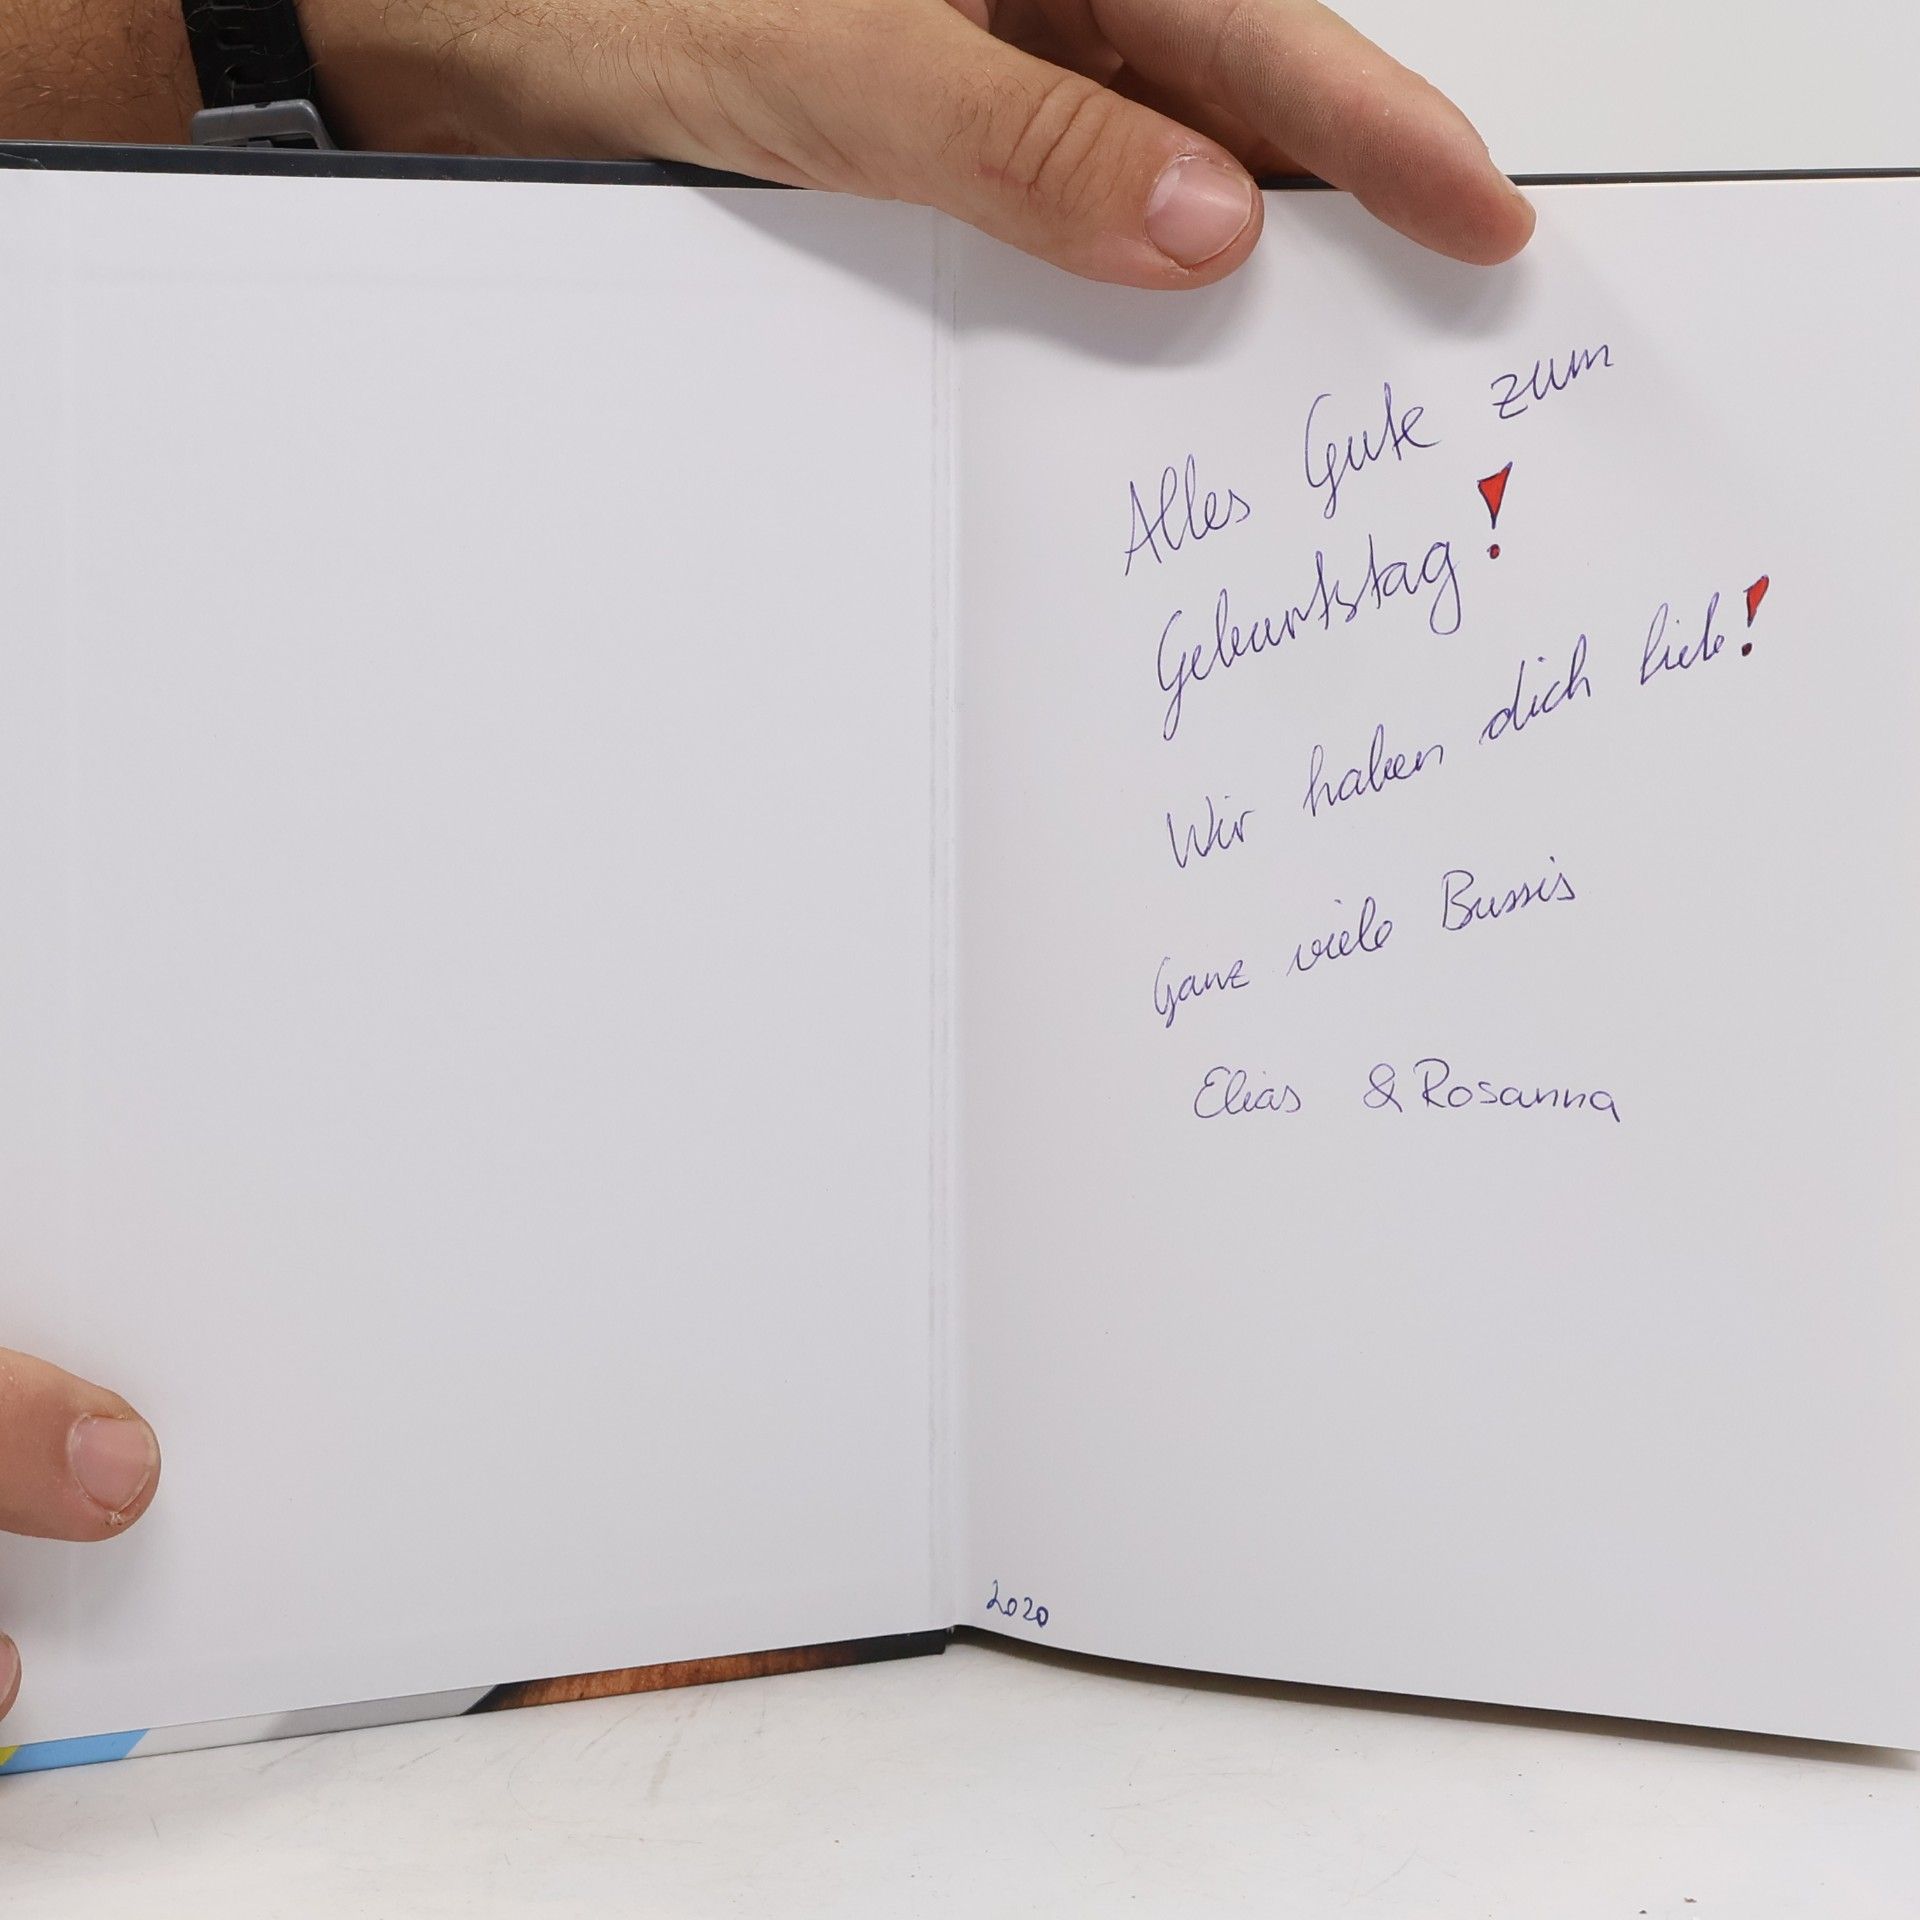 Alles Gute zum
Geburtstag!
Wir haben dich lieb!
Ganz viele Bussis
Elias & Rosanna
2020